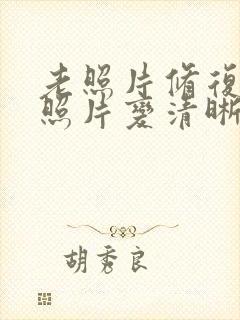 老照片修復
照片變清晰
胡秀良